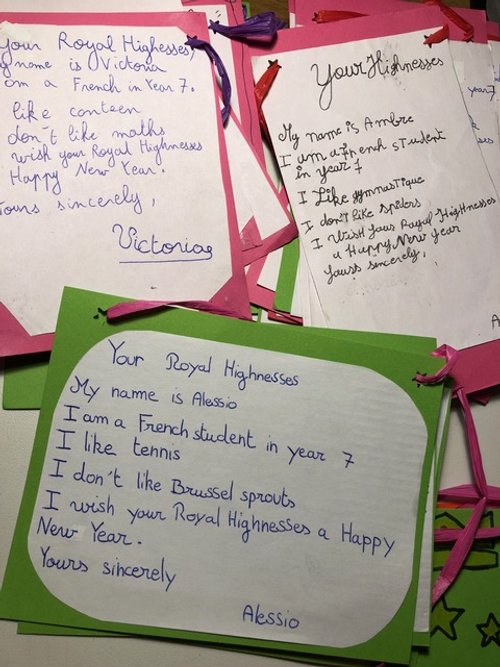 your Royal Highesses,
my name is Victoria
am a French in Year 7.
like conteen
don't like maths
wish your Royal Highnesses
Happy New Year.
Yours sincerely,
Victoria
Your Highnesses
My name is Ambre
I am a french student
in year 7
I Like gymnastique
I don't like spiders
I Wish your Royal Highnesses
a Happy New year
yours sincerely,
A
year 7
Your Royal Highnesses
My name is Alessio
I am a French student in year 7
I like tennis
I don't like Brussel sprouts
I wish your Royal Highnesses a Happy
New Year.
Yours sincerely
Alessio